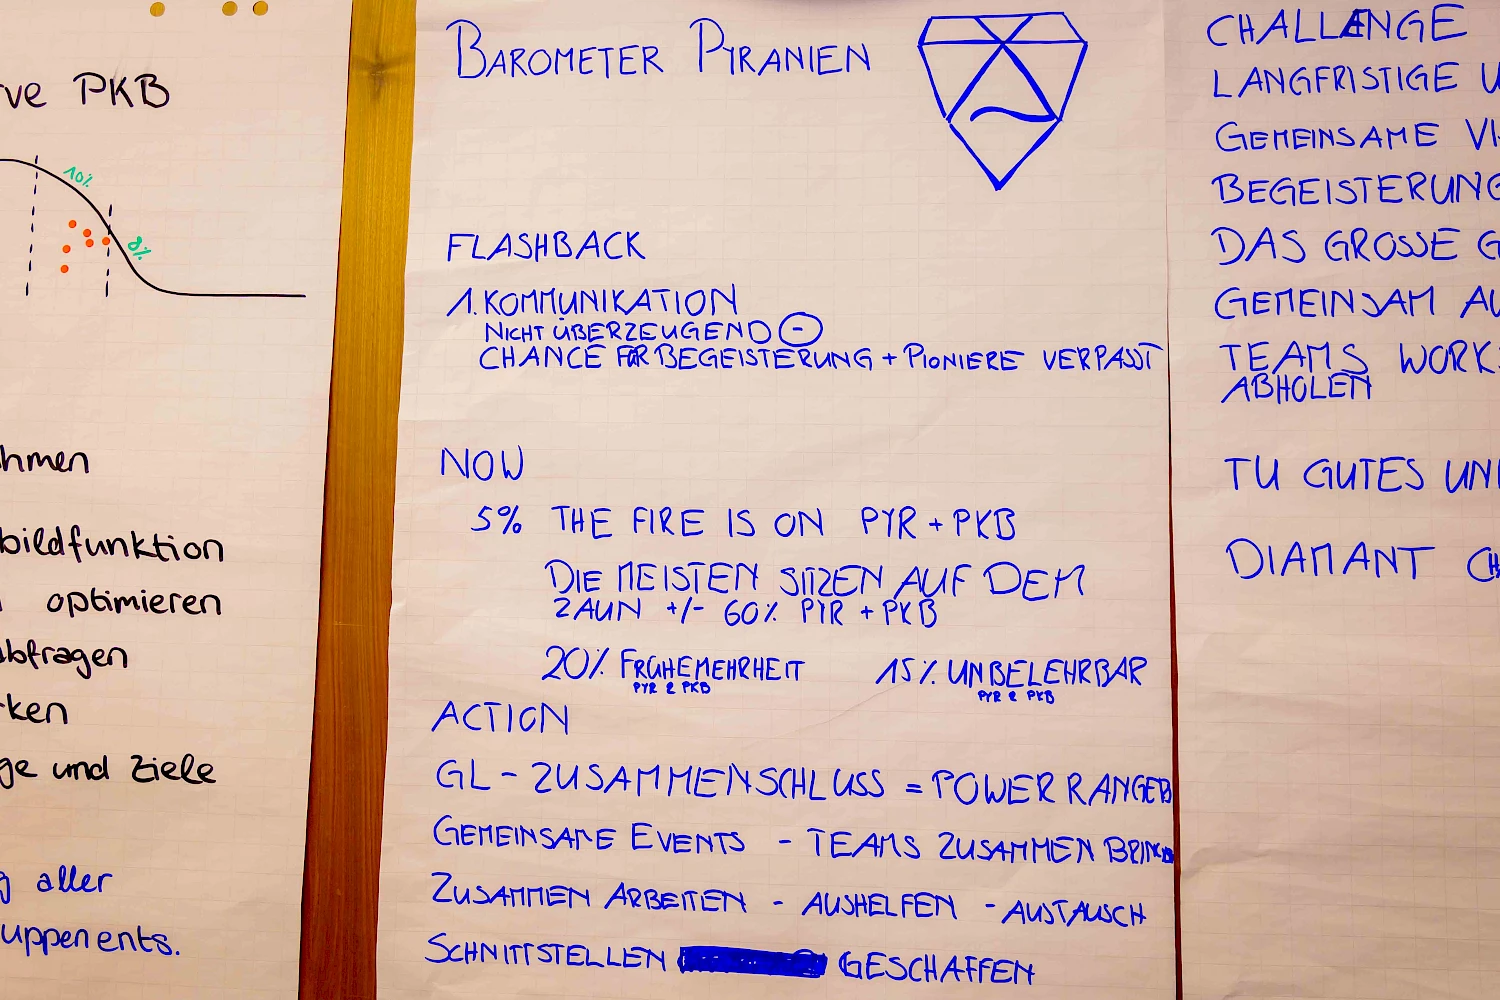 rve PKB
10%
8%
hmen
bildfunktion
optimieren
abfragen
rken
ge und Ziele
g aller
uppenents.
BAROMETER PYRANIEN
FLASHBACK
1. KOMMUNIKATION
NICHT ÜBERZEUGEND -
CHANCE FÜR BEGEISTERUNG + PIONIERE VERPASST
NOW
5% THE FIRE IS ON PYR + PKB
DIE MEISTEN SITZEN AUF DEM
ZAUN +/- 60% PYR + PKB
20% FRÜHE MEHRHEIT 15% UNBELEHRBAR
PYR & PKB PYR & PKB
ACTION
GL - ZUSAMMENSCHLUSS = POWER RANGER
GEMEINSAME EVENTS - TEAMS ZUSAMMEN BRINGEN
ZUSAMMEN ARBEITEN - AUSHELFEN - AUSTAUSCH
SCHNITTSTELLEN GESCHAFFEN
CHALLENGE
LANGFRISTIGE U
GEMEINSAME VI
BEGEISTERUNG
DAS GROSSE G
GEMEINSAM AU
TEAMS WORKS
ABHOLEN
TU GUTES UN
DIAMANT CH